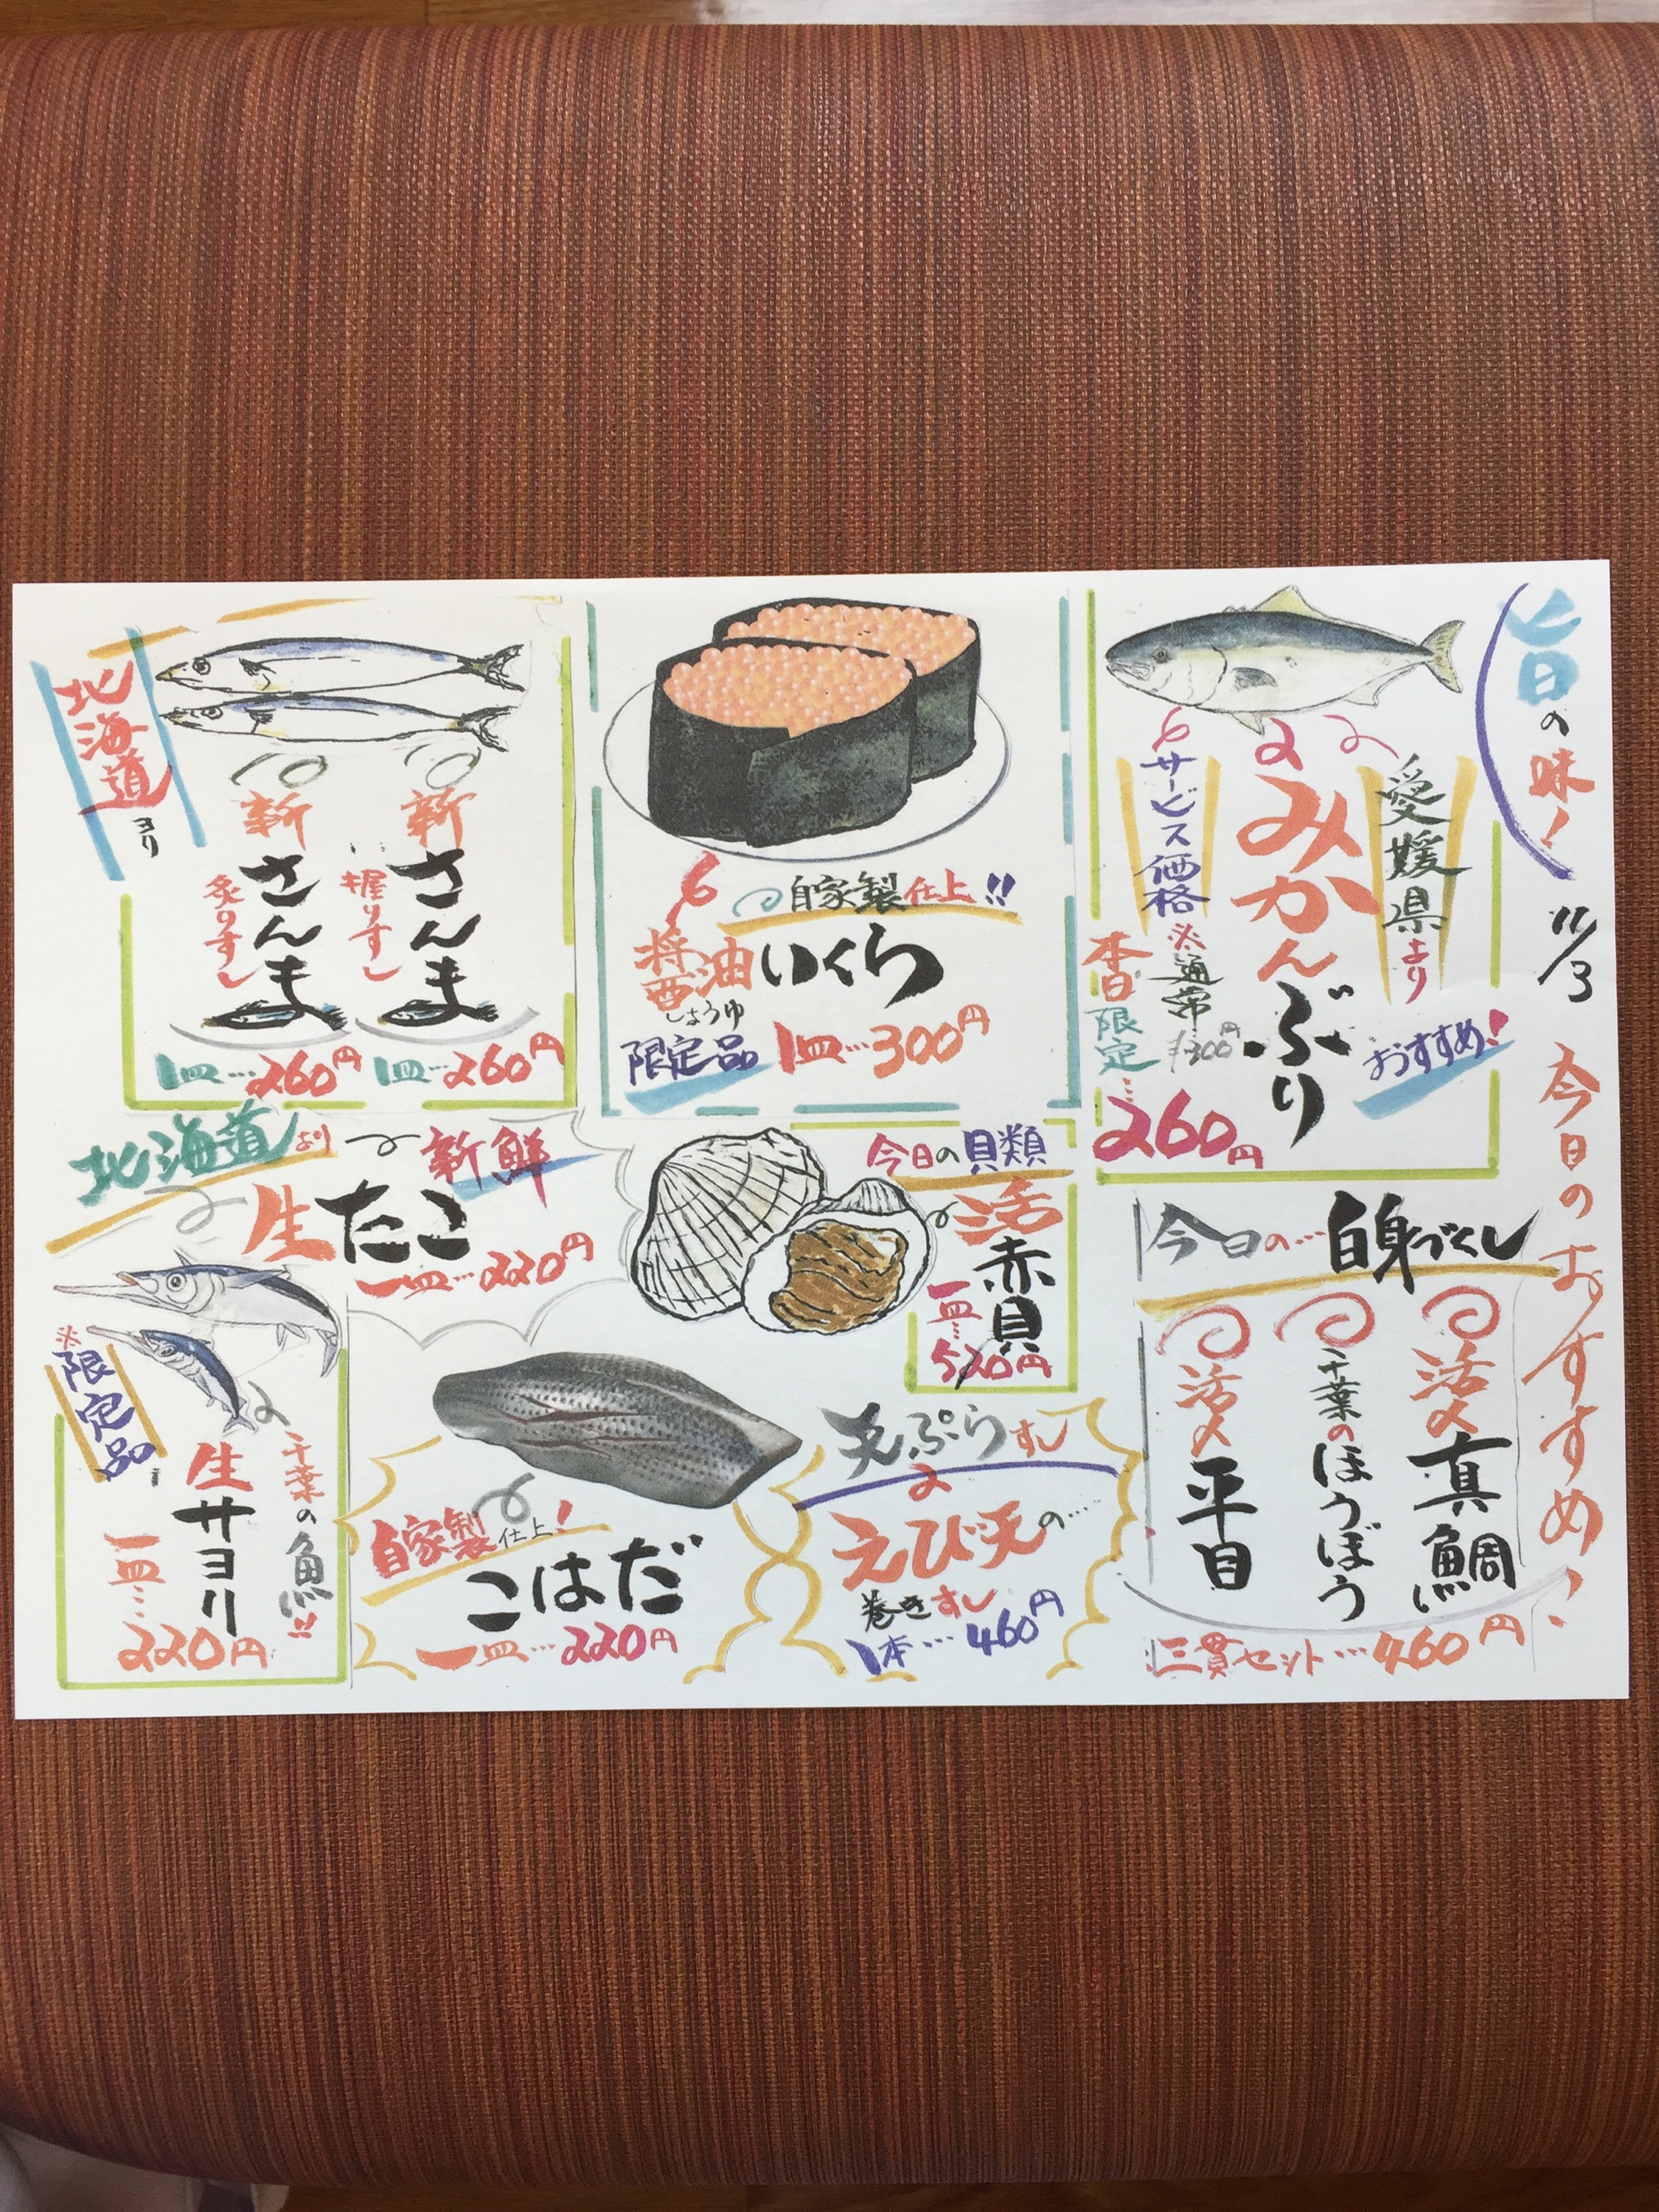 旨の味！
11/3
今日のおすすめ！
愛媛県より
みかんぶり
おすすめ！
サービス価格
※通常
300円
本日限定…
260円
自家製仕上!!
醤油いくら
しょうゆ
限定品
1皿…300円
北海道ヨリ
新さんま
握りすし
1皿…260円
新さんま
炙りすし
1皿…260円
今日の…白身づくし
活〆真鯛
千葉のほうぼう
活〆平目
三貫セット…460円
今日の貝類
活赤貝
一皿…
520円
北海道より
新鮮
生たこ
一皿…220円
天ぷらすし
えび天の…
巻きすし
1本…460円
自家製仕上！
こはだ
一皿…220円
千葉の魚!!
生サヨリ
※限定品
一皿…
220円